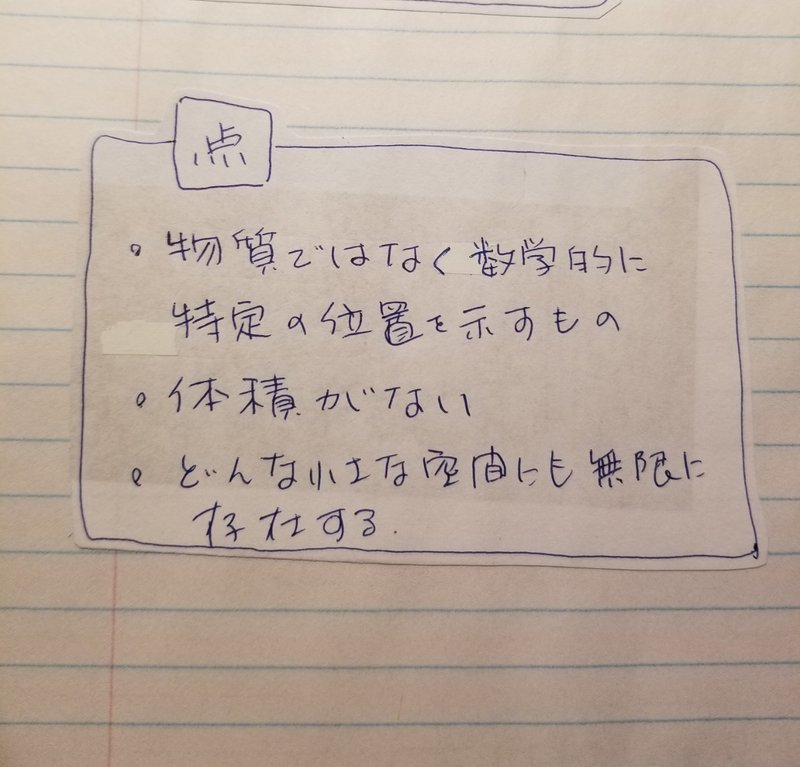 点
• 物質ではなく数学的に
特定の位置を示すもの
• 体積がない
• どんな小さな空間にも無限に
存在する.